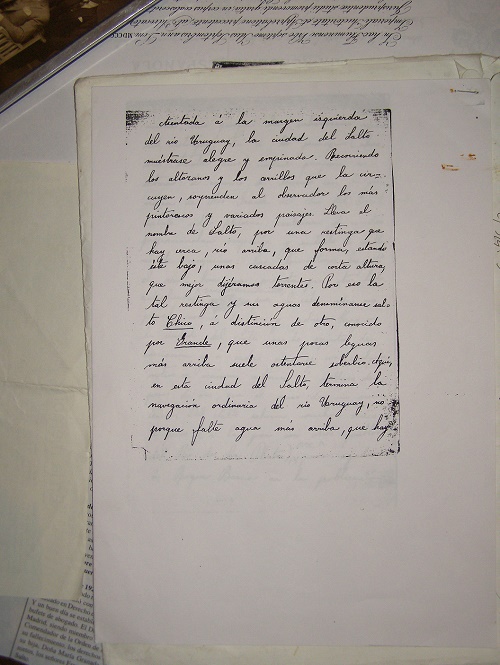 Asentada á la margen izquierda
del rio Uruguay, la ciudad del Salto
muéstrase alegre y empinada. Recorriendo
los altozanos y los cerrillos que la cir-
cuyen, sorprenden al observador los más
pintorescos y variados paisajes. Lleva el
nombre de Salto, por una restinga que
hay cerca, rio arriba, que forma, estando
éste bajo, unas cascadas de corta altura,
que mejor dijéramos torrentes. Por eso la
tal restinga y sus aguas denomínanse sal-
to Chico, á distinción de otro, conocido
por Grande, que unas pocas leguas
más arriba suele ostentarse soberbio. Aquí,
en esta ciudad del Salto, termina la
navegación ordinaria del rio Uruguay, no
porque falte agua más arriba, que hay